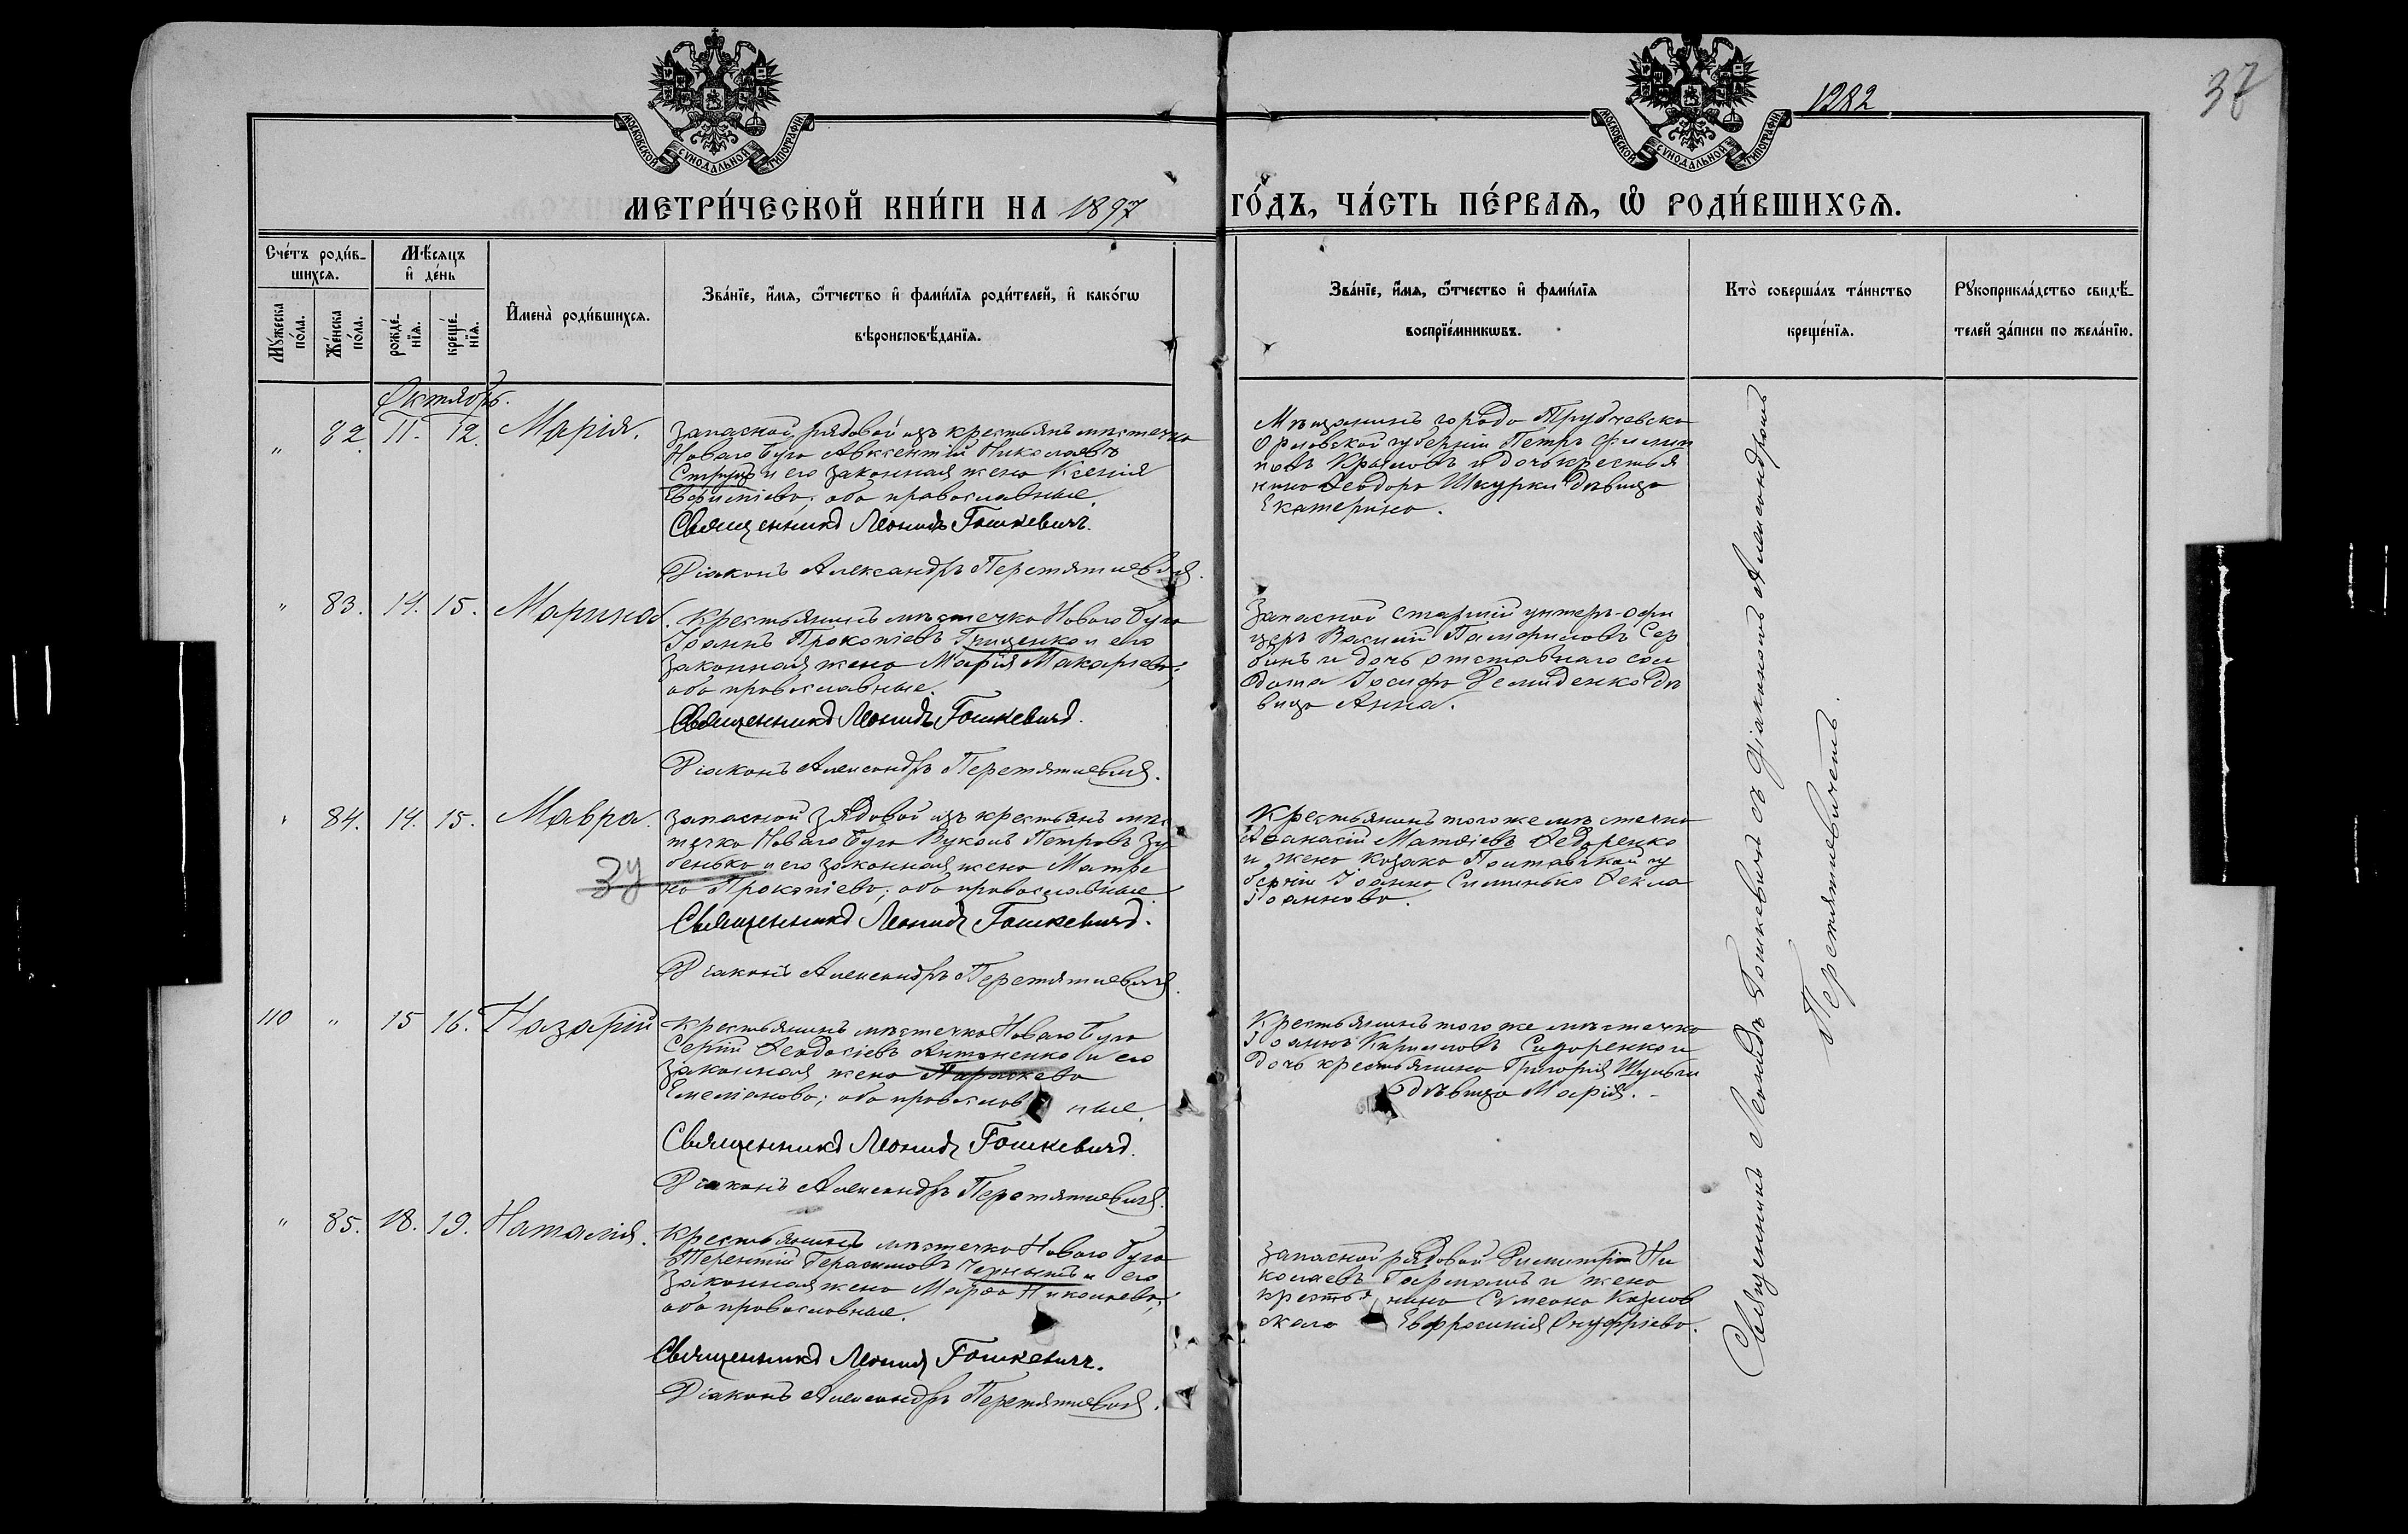 1282
37
МОСКОВСКОЙ СѴНОДАЛЬНОЙ ТИПОГРАФІИ
МОСКОВСКОЙ СѴНОДАЛЬНОЙ ТИПОГРАФІИ
МЕТРИ́ЧЕСКОЙ КНИ́ГИ НА 1897 ГО́ДЪ, ЧА́СТЬ ПЕ́РВАѦ, Ѽ РОДИ́ВШИХСѦ.
Сче́тъ роди́в-
шихсѧ.
Мꙋ́жеска по́ла.
Же́нска по́ла.
Мѣ́сѧцъ
и҆ де́нь
рожде́-нїѧ.
креще́-нїѧ.
И҆мена̀ роди́вшихсѧ.
Зва́нїе, и҆́мѧ, ѻ҆́тчество и҆ фами́лїѧ роди́телей, и҆ како́гѡ
вѣроисповѣ́данїѧ.
Зва́нїе, и҆́мѧ, ѻ҆́тчество и҆ фами́лїѧ
воспрїе́мникѡвъ.
Кто̀ соверша́лъ та́инство
креще́нїѧ.
Рꙋкоприкла́дство свидѣ́-
телей за́писи по жела́нїю.
Октябрь.
" 82. 11. 12. Марія.
Запасной рядовой изъ крестьянъ мѣстечка
Новаго Буга Авксентій Николаевъ
и его законная жена Ксенія
оба православные.
Священникъ Леонидъ Гошкевичъ.
Діаконъ Александръ Перетятковичъ.
Мѣщанинъ города Трубчевска
Орловской губерніи Петръ Филип
повъ Крыловъ и дочь крестья
нина Ѳеодора Шкурки дѣвица
Екатерина.
" 83. 14. 15. Марина.
Крестьянинъ мѣстечка Новаго Буга
Іоаннъ Прокопіевъ Грищенко и его
законная жена Марія Макаріева;
оба православные.
Священникъ Леонидъ Гошкевичъ.
Діаконъ Александръ Перетятковичъ.
Запасной старшій унтеръ-офи
церъ Василій Памфиловъ Сер
бинъ и дочь отставнаго сол
дата Іосифа Демиденко дѣ
вица Анна.
" 84. 14. 15. Мавра.
Запасной рядовой изъ крестьянъ мѣс
течка Новаго Буга Вуколъ Петровъ Зу
бенько и его законная жена Матре
на Прокопіева; оба православные.
Зу
Священникъ Леонидъ Гошкевичъ.
Діаконъ Александръ Перетятковичъ.
Крестьянинъ того же мѣстечка
Аѳанасій Матѳіевъ Ѳедоренко
и жена козака Полтавской гу
берніи Іоанна Ѳекла
Іоаннова.
110 " 15 16. Назарій
Крестьянинъ мѣстечка Новаго Буга
Сергій Ѳеодосіевъ Антоненко и его
законная жена Параскева
Емеліанова; оба православные.
Священникъ Леонидъ Гошкевичъ.
Діаконъ Александръ Перетятковичъ.
Крестьянинъ того же мѣстечка
Іоаннъ Кирилловъ Сидоренко и
дочь крестьянина Григорія Шульги
дѣвица Марія.
" 85. 18. 19. Наталія.
Крестьянинъ мѣстечка Новаго Буга
Терентій Герасимовъ и его
законная жена Марѳа Николаева;
оба православные.
Священникъ Леонидъ Гошкевичъ.
Діаконъ Александръ Перетятковичъ.
Запасной рядовой Димитрій Ни
колаевъ и жена
крестьянина Сѵмеона Козлов
скаго Евфросинія Онуфріева.
Священникъ Леонидъ Гошкевичъ съ діакономъ Александромъ
Перетятковичемъ.